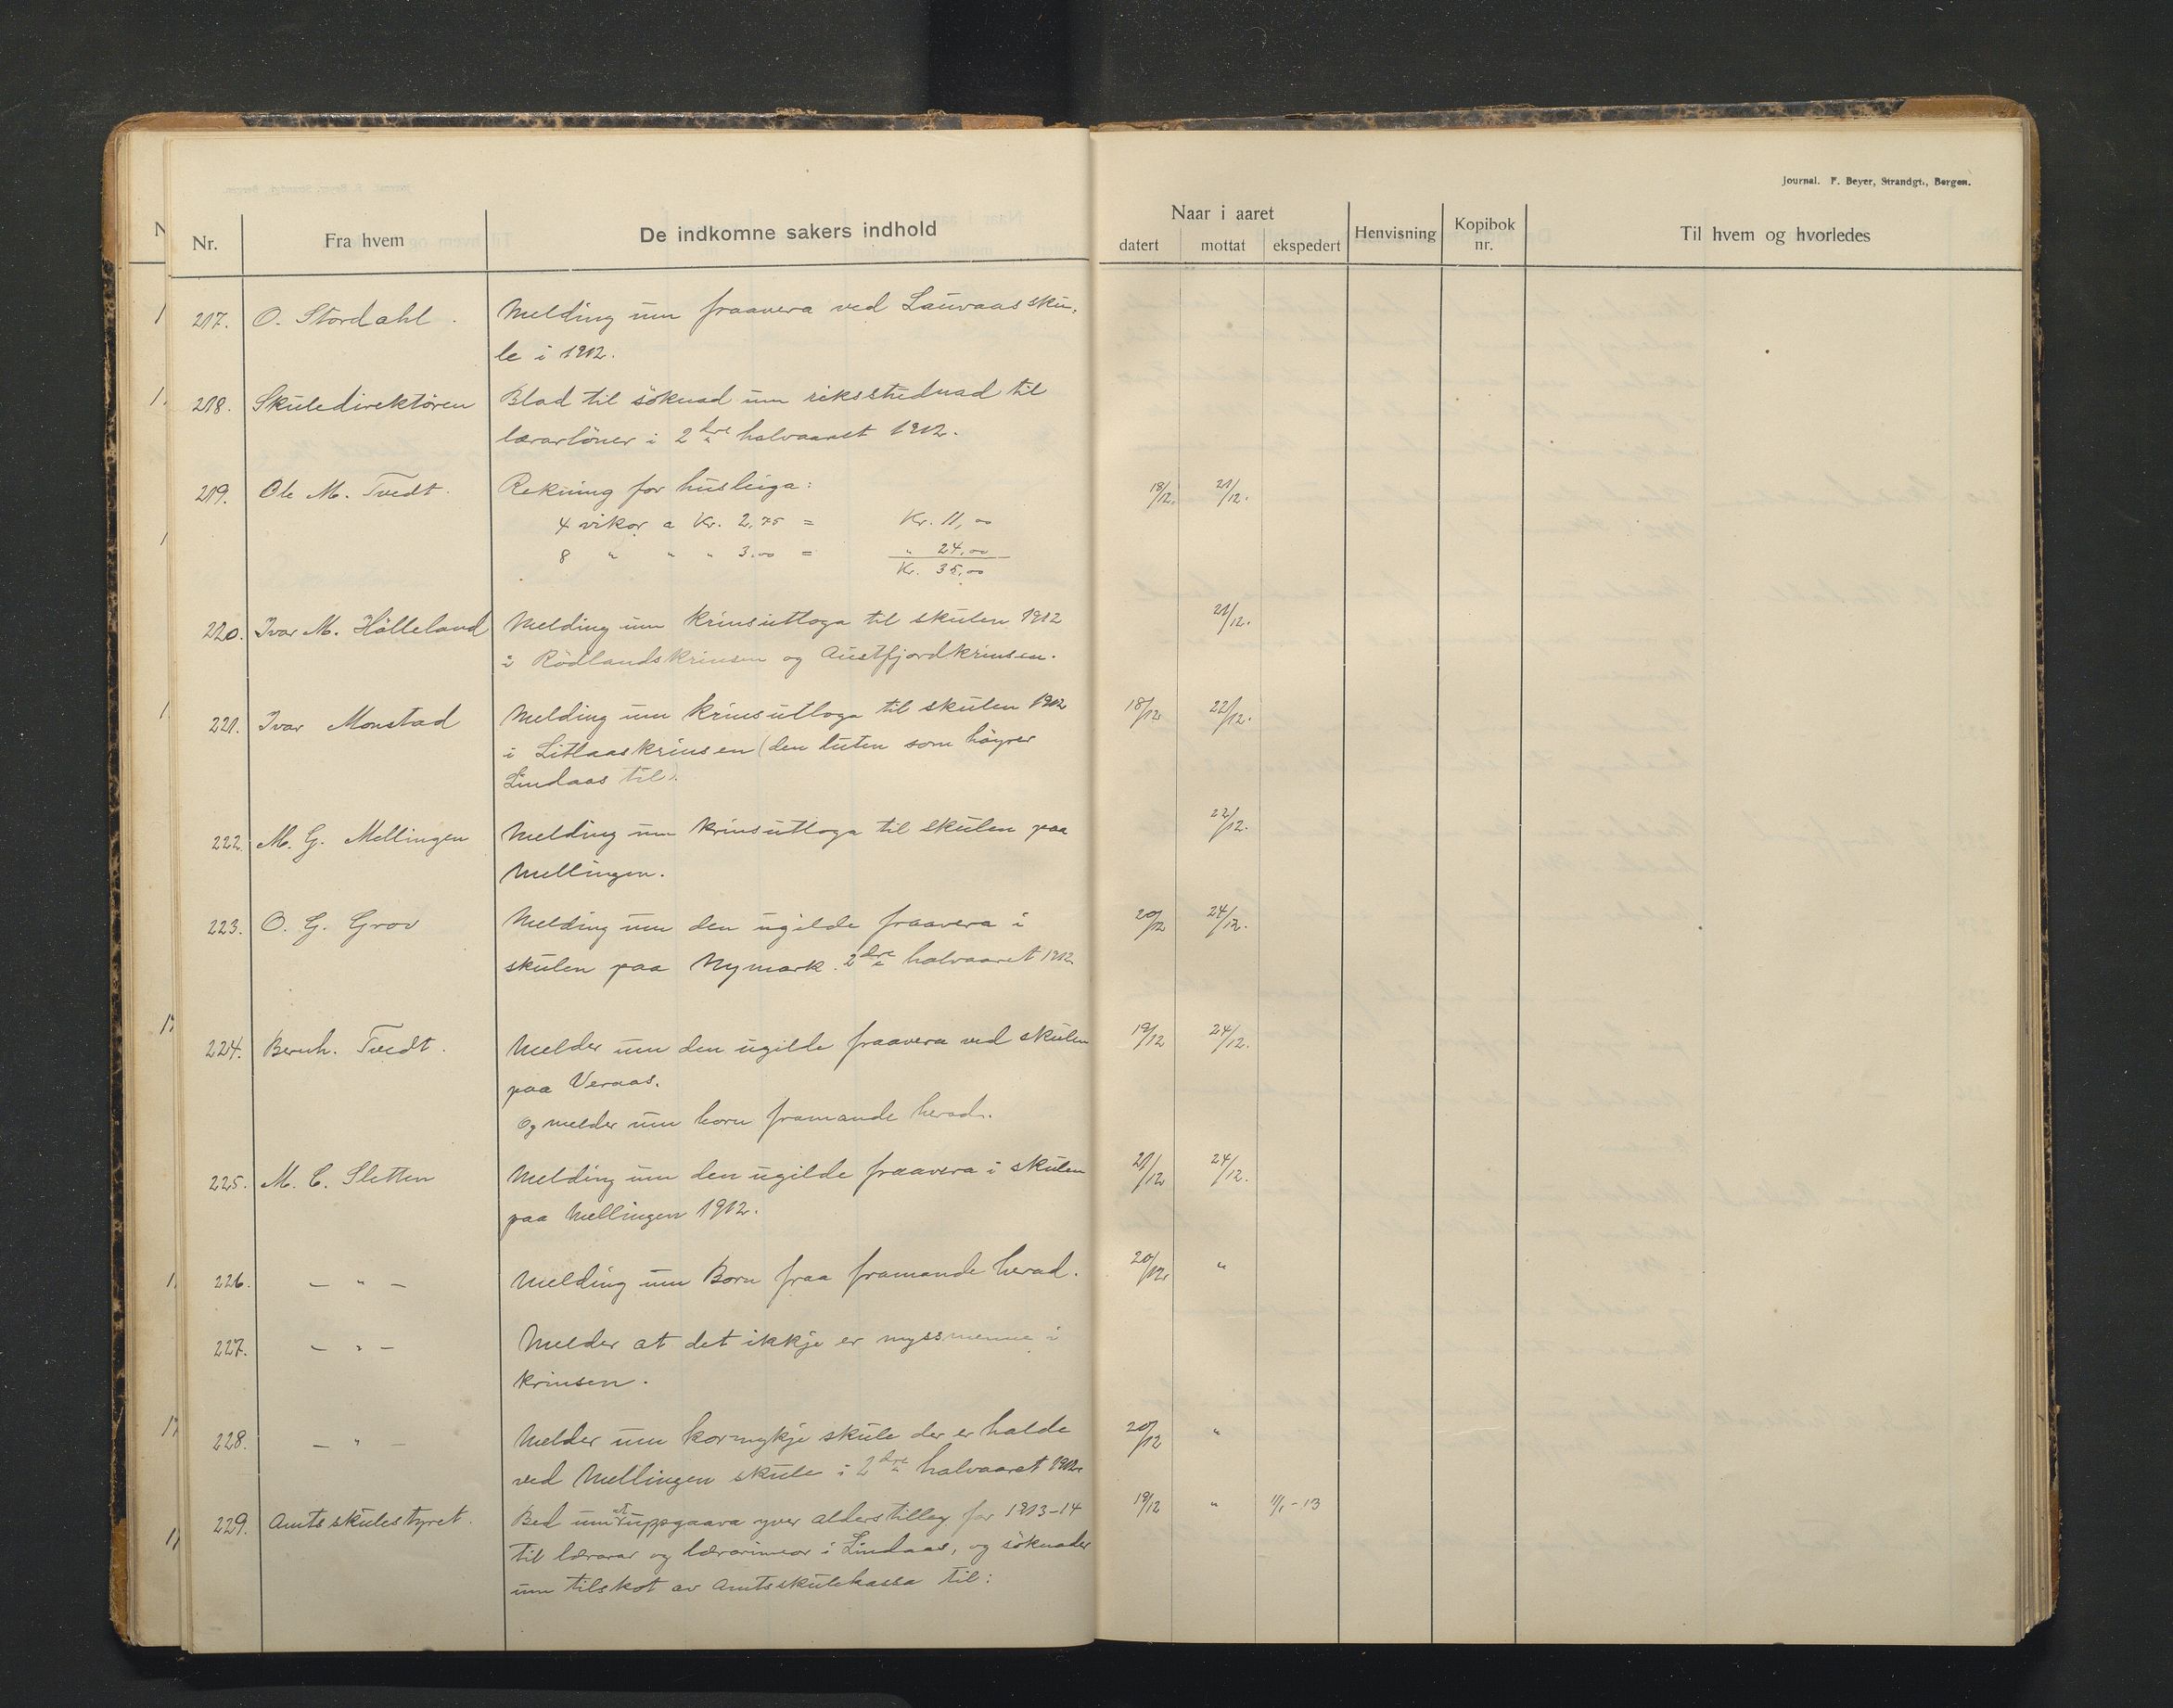 Journal. F. Beyer, Strandgt., Bergen.
Nr. Fra hvem De indkomne sakers indhold Naar i aaret Henvisning Kopibok nr. Til hvem og hvorledes
datert mottat ekspedert
217. O. Stordahl. Melding um fraavera ved Lauvaas sku-
le i 1912.
218. Skuledirektören Blad til söknad um riksstudnad til
lærarlöner i 2dre halvaaret 1912.
219. Ole M. Tvedt. Rekning for husleiga: 18/12. 21/12.
4 vikor a Kr. 2,75 = Kr. 11,00
8 " " " 3.00 = " 24,00
Kr. 35,00
220. Ivar M. Hölleland Melding um krinsutloga til skulen 1912 21/12.
i Rödlandskrinsen og Austfjordkrinsen.
221. Ivar Monstad Melding um krinsutloga til skulen 1912 18/12 22/12.
i Litlaaskrinsen (den luten som höyrer
Lindaas til).
222. M. G. Mellingen Melding um krinsutloga til skulen paa 22/12.
Mellingen.
223. O. G. Grov Melding um den ugilde fraavera i 20/12 24/12.
skulen paa Nymark 2dre halvaaret 1912
224. Bernh. Tvedt. Melder um den ugille fraavera ved skulen 19/12 24/12.
paa Veraas.
Og melder um born framande herad.
225. M. C. Sletten Melding um den ugilde fraavera i skulen 21/12 24/12.
paa Mellingen 1912.
226. — " — Melding um Born fraa framande herad. 20/12. "
227. — " — Melder at det ikkje er nyssmenne i
krinsen.
228. — " — Melder um kor mykje skule der er halde 20/12 "
ved Mellingen skule i 2dre halvaaret 1912.
229. Amtsskulestyret. Bed um uppgaava yver alderstilleg for 1913-14 19/12 " 11/1-13
til lærarar og lærarinnor i Lindaas, og söknader
um tilskot av Amtsskulekassa til: